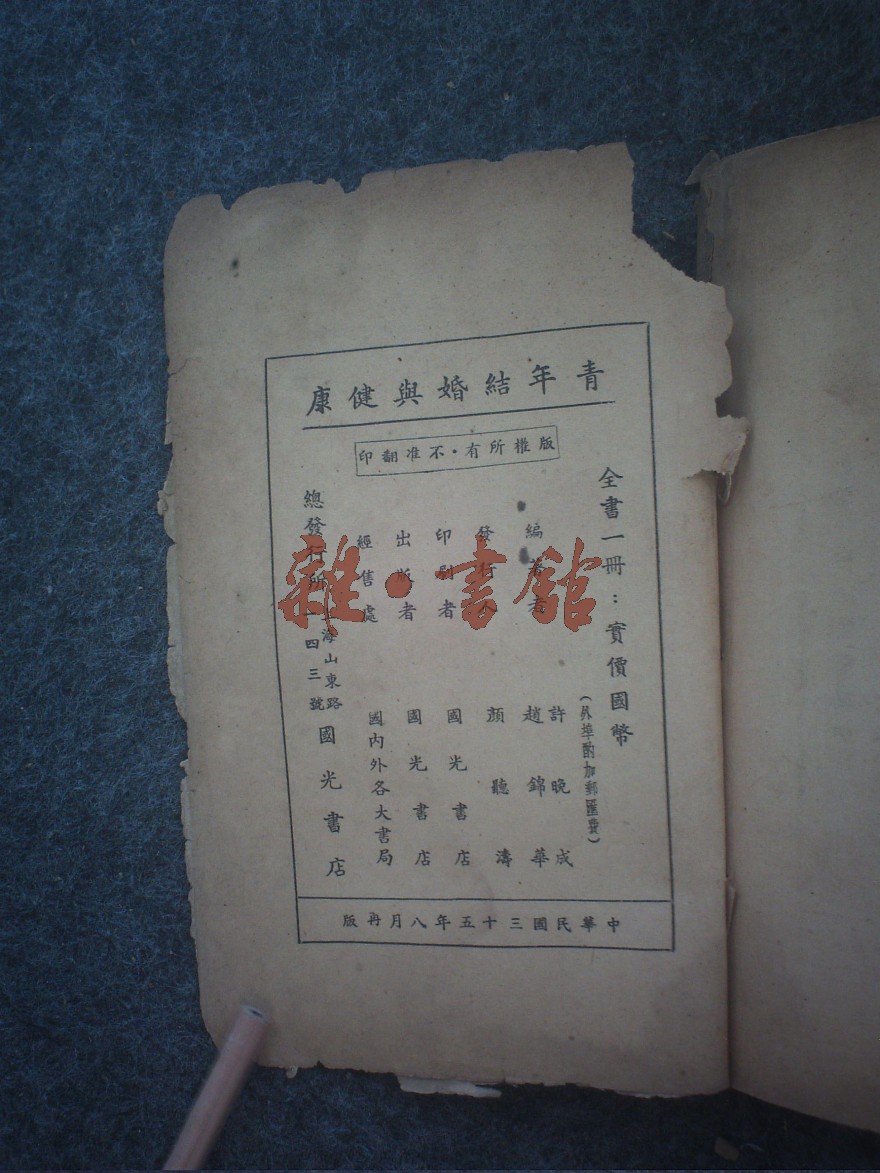 青年結婚與健康
版權所有·不准翻印
全書一冊：實價國幣
（外埠酌加郵匯費）
編著者 許晚成
趙錦華
發行人 顏聽濤
印刷者 國光書店
出版者 國光書店
經售處 國內外各大書局
總發行所 上海山東路
一四三號 國光書店
中華民國三十五年八月再版
雜·書館